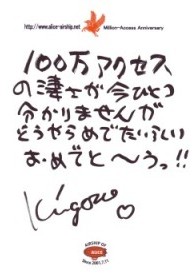 http://www.alice-airship.net Million-Access Anniversary
100万アクセス
の凄さが今ひとつ
分かりませんが
どうやらめでたいらしい
おめでと〜うっ!!
AIRSHIP OF
ALICE
Since 2001.7.11